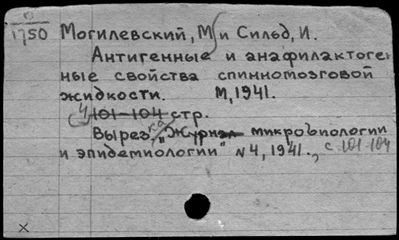 1750 Могилевский, М. и Сильд, И.
Антигенные и анафилактоген
ные свойства спинномозговой
жидкости. М, 1941.
(4) 101-104 стр.
Вырез. "Журнал микробиологии
и эпидемиологии" N4, 1941., с 101-104